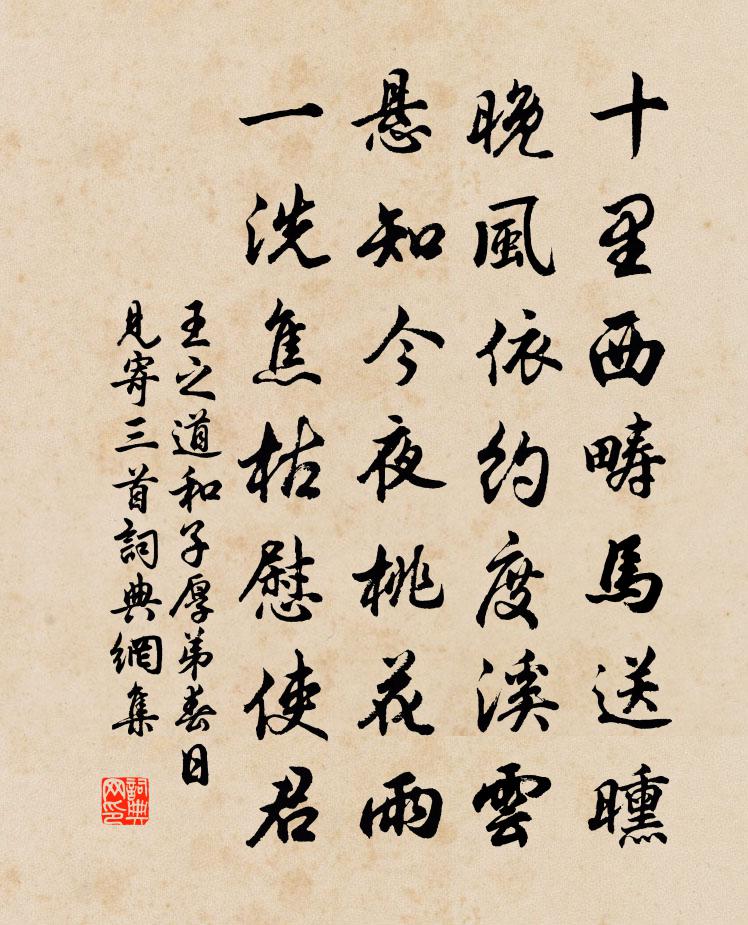 十里西疇馬送曛
晚風依約度溪雲
悬知今夜桃花雨
一洗焦枯慰使君
王之道和子厚弟春日
見寄三首詞典網集
詞典网印